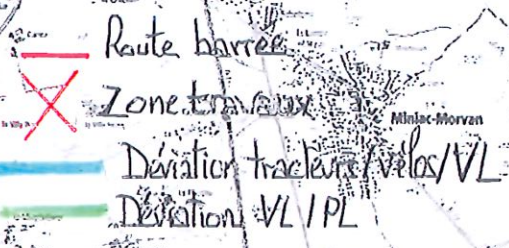 Route barrée
Zone travaux
Miniac-Morvan
Déviation tracteurs/vélos/VL
Déviation VL / PL